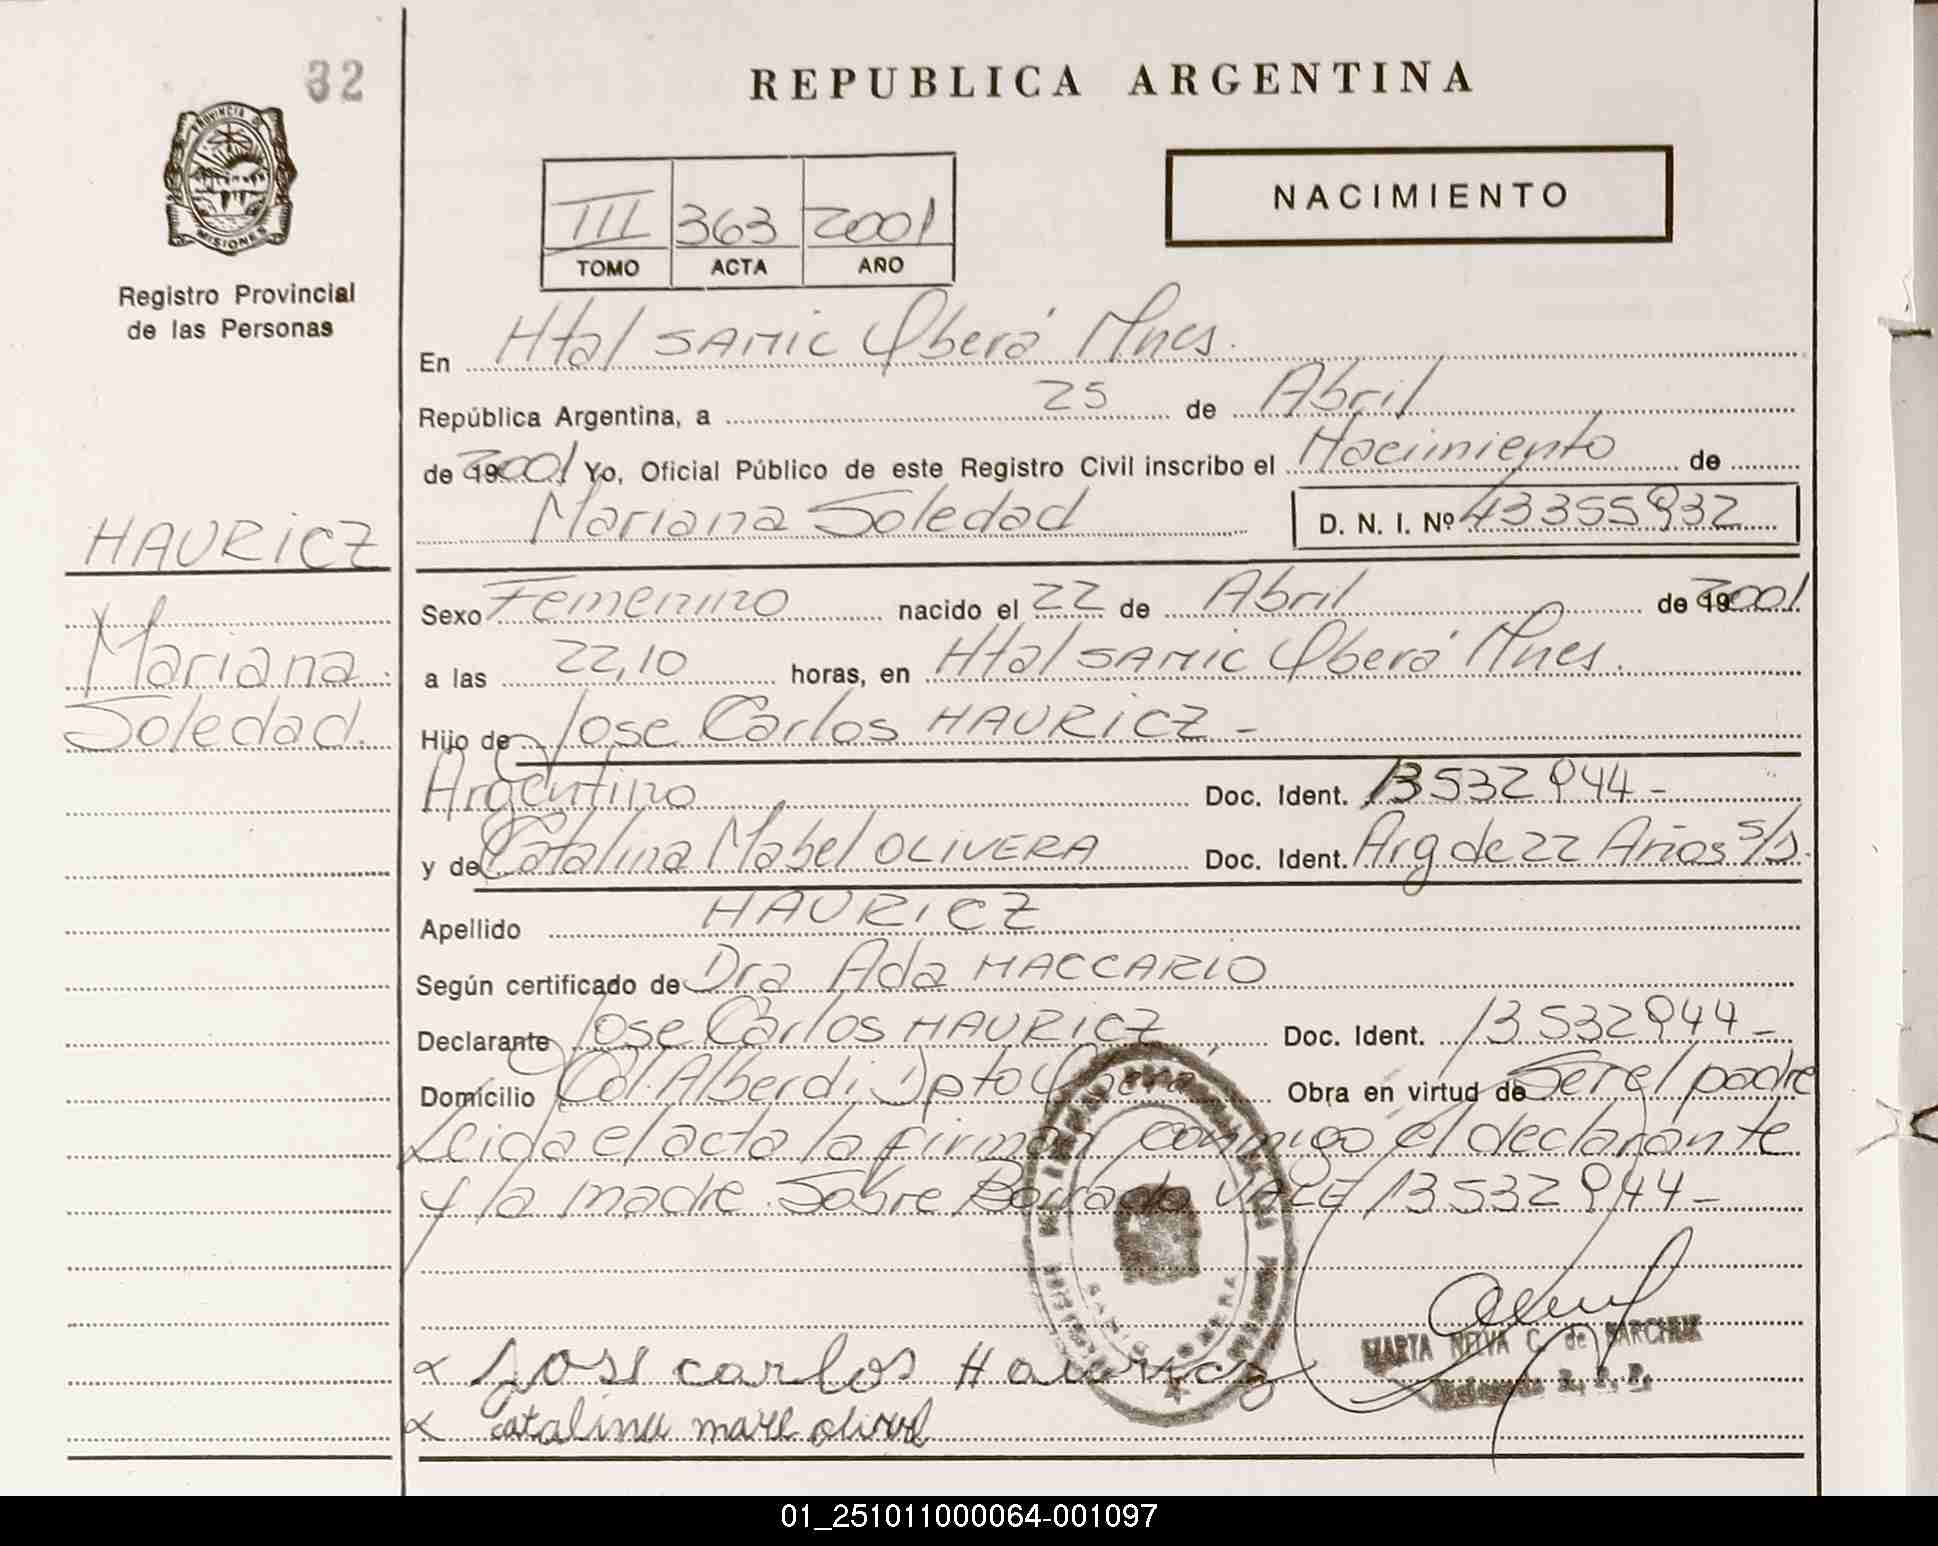 32
REPUBLICA ARGENTINA
PROVINCIA DE
MISIONES
III 363 2001
TOMO ACTA AÑO
NACIMIENTO
Registro Provincial
de las Personas
En Htal SAMIC Oberá Mnes.
República Argentina, a 25 de Abril
de 192001 Yo, Oficial Público de este Registro Civil inscribo el Nacimiento de
Mariana Soledad D. N. I. Nº 43355932
HAURICZ
Mariana
Soledad.
Sexo Femenino nacido el 22 de Abril de 192001.
a las 22,10 horas, en Htal SAMIC Oberá Mnes.
Hijo de Jose Carlos HAURICZ -
Argentino Doc. Ident. 13532944-
y de Catalina Mabel OLIVERA Doc. Ident. Arg de 22 Años s/d.
Apellido HAURICZ
Según certificado de Dra Ada MACCARIO
Declarante Jose Carlos HAURICZ, Doc. Ident. 13532944-
Domicilio Col. Alberdi Dpto Oberá Obra en virtud de Ser el padre
Leida el acta la firman conmigo el declarante
y la madre. Sobre Borrado VALE 13532944-
MARTA NELVA C. de SARCHUK
Delegada R. P. P.
x Jose carlos Hauricz
x catalina
01_251011000064-001097